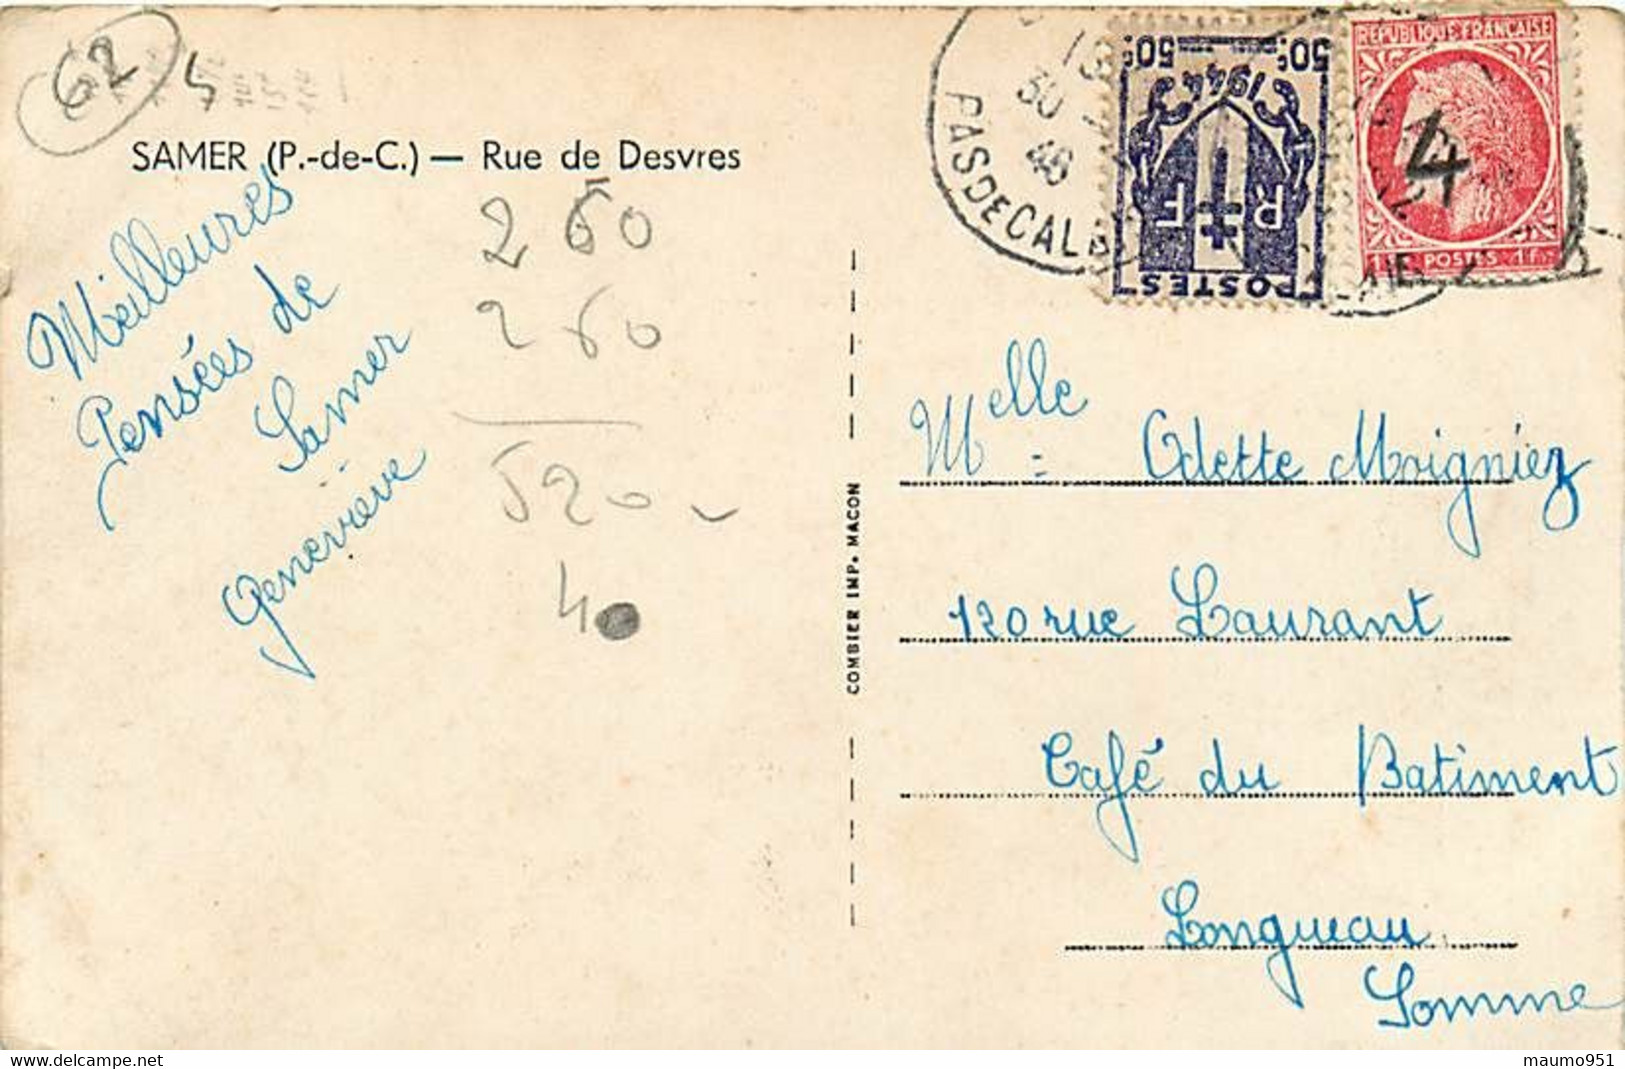 62
4
SAMER (P.-de-C.) — Rue de Desvres
Meilleures
Pensées de
Samer
Geneviève
260
260
520
40
COMBIER IMP. MACON
30
46
PAS DE CALAIS
50c 50c
1944
R F
POSTES
REPUBLIQUE FRANÇAISE
1f POSTES 1f
4
Melle Odette Moigniez
120 rue Laurant
Café du Batiment
Longueau
Somme
maumo951